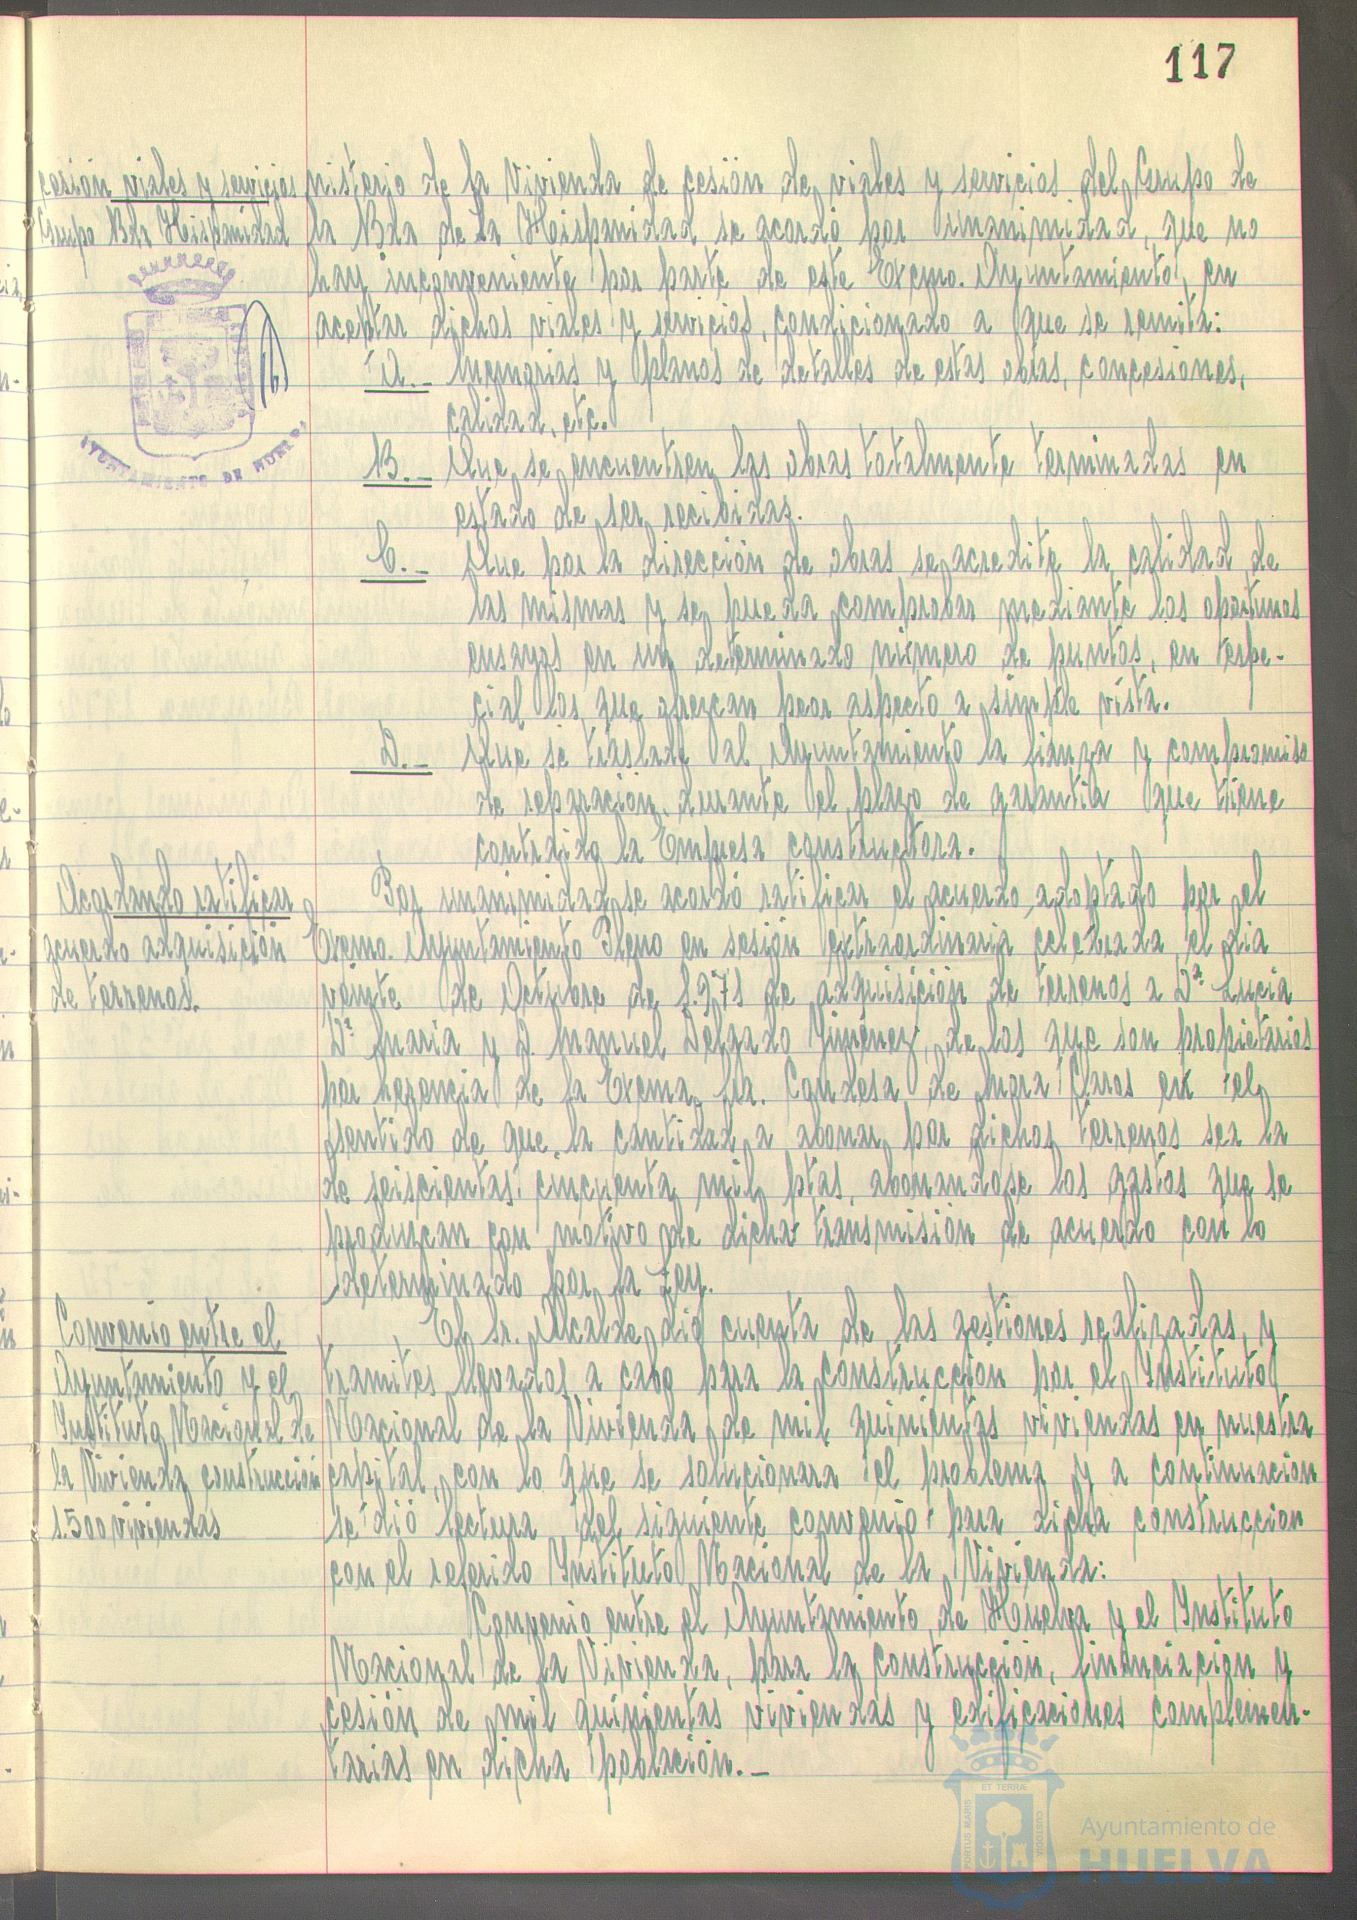 117
cesión viales y servicios
Grupo Bda Hispanidad
AYUNTAMIENTO DE HUELVA
nisterio de la Vivienda de cesión de viales y servicios del Grupo de
la Bda de la Hispanidad se acordó por unanimidad, que no
hay inconveniente por parte de este Excmo. Ayuntamiento, en
aceptar dichos viales y servicios, condicionado a que se remita:
A.- Memorias y planos de detalles de estas obras, concesiones,
calidad, etc.
B.- Que se encuentren las obras totalmente terminadas en
estado de ser recibidas.
C.- Que por la dirección de obras se acredite la calidad de
las mismas y se pueda comprobar mediante los oportunos
ensayos en un determinado número de puntos, en espe-
cial los que ofrezcan peor aspecto a simple vista.
D.- Que se traslade al Ayuntamiento la fianza y compromiso
de reparación durante el plazo de garantía que tiene
contraido la Empresa constructora.
Acordando ratificar
acuerdo adquisición
de terrenos.
Por unanimidad se acordó ratificar el acuerdo adoptado por el
Excmo. Ayuntamiento Pleno en sesión extraordinaria celebrada el dia
veinte de Octubre de 1.971 de adquisición de terrenos a Dª Lucia
Dª Maria y D. Manuel Delgado Jiménez, de los que son propietarios
por herencia de la Excma. Sra. Condesa de Mora Claros en el
sentido de que la cantidad a abonar por dichos terrenos sea la
de seiscientas cincuenta mil ptas, abonandose los gastos que se
produzcan con motivo de dicha transmisión de acuerdo con lo
determinado por la Ley.
Convenio entre el
Ayuntamiento y el
Instituto Nacional de
la Vivienda construcción
1.500 viviendas
El Sr. Alcalde dió cuenta de las gestiones realizadas, y
tramites llevados a cabo para la construcción por el Instituto
Nacional de la Vivienda de mil quinientas viviendas en nuestra
capital, con lo que se solucionara el problema y a continuacion
se dió lectura del siguiente convenio para dicha construccion
con el referido Instituto Nacional de la Vivienda:
Convenio entre el Ayuntamiento de Huelva y el Instituto
Nacional de la Vivienda, para la construcción, financiacion y
cesión de mil quinientas viviendas y edificaciones complemen-
tarias en dicha población.-
PORTUS MARIS ET TERRÆ CUSTODIA
Ayuntamiento de
HUELVA